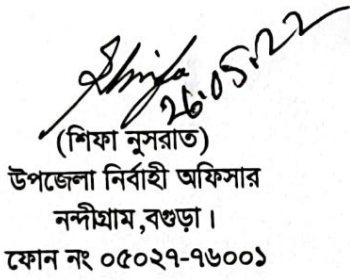 Shifa
26.05.22
(শিফা নুসরাত)
উপজেলা নির্বাহী অফিসার
নন্দীগ্রাম,বগুড়া।
ফোন নং ০৫০২৭-৭৬০০১